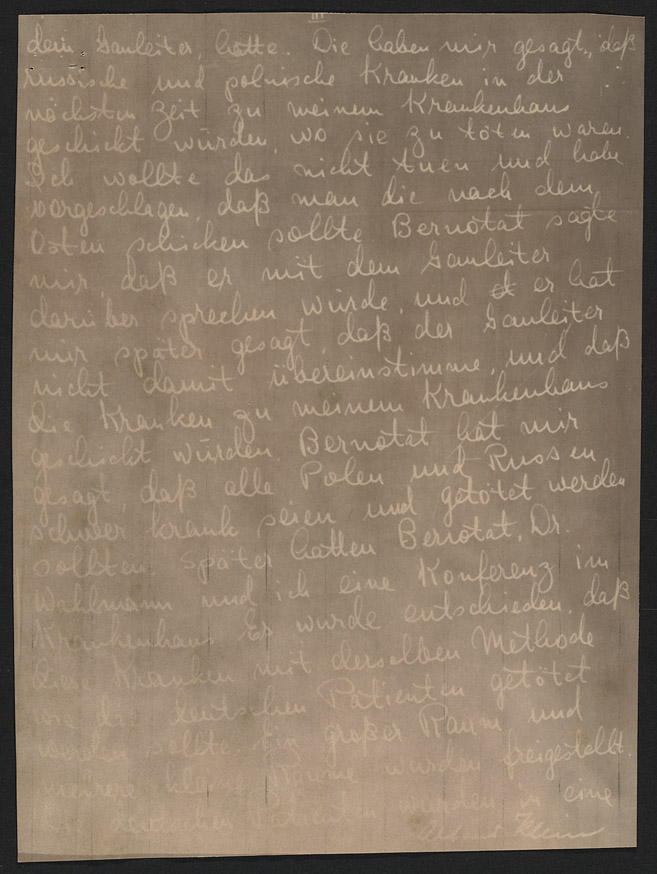 III
dem Gauleiter, hatte. Die haben mir gesagt, daß
russische und polnische Kranken in der
nächsten Zeit zu meinem Krankenhaus
geschickt würden, wo sie zu töten waren.
Ich wollte das nicht tuen und habe
vorgeschlagen, daß man die nach dem
Osten schicken sollte. Bernotat sagte
mir, daß er mit dem Gauleiter
darüber sprechen würde, und er hat
mir später gesagt, daß der Gauleiter
nicht damit übereinstimme, und daß
die Kranken zu meinem Krankenhaus
geschickt würden. Bernotat hat mir
gesagt, daß alle Polen und Russen
schwer krank seien und getötet werden
sollten. Später hatten Bernotat, Dr.
Wahlmann und ich eine Konferenz im
Krankenhaus. Es wurde entschieden, daß
diese Kranken mit derselben Methode
wie die deutschen Patienten getötet
werden sollte. Ein großer Raum und
mehrere kleine Räume wurden freigestellt.
Die deutschen Patienten wurden in eine
Klein